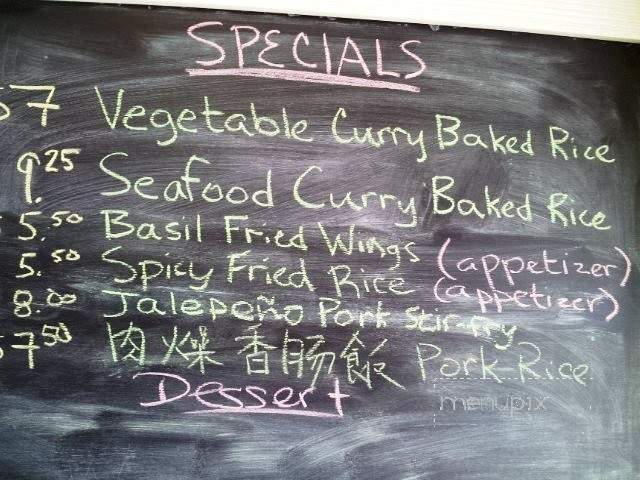 SPECIALS
$7 Vegetable Curry Baked Rice
9.25 Seafood Curry Baked Rice
5.50 Basil Fried Wings (appetizer)
5.50 Spicy Fried Rice (appetizer)
8.00 Jalepeño Pork Stir-fry
$7.50 肉燥香肠飯 Pork Rice
Dessert
menupix